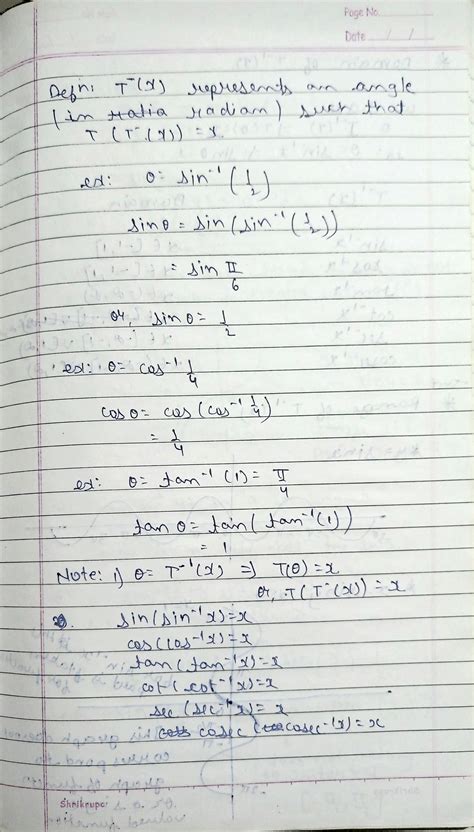 Page No.
Date / /
Defn: T⁻¹(x) represents an angle
(in ratia radian) such that
T (T⁻¹(x)) = x.
ex: θ = sin⁻¹ (1/2)
sinθ = sin (sin⁻¹ (1/2))
= sin π/6
or, sinθ = 1/2
ex: θ = cos⁻¹ 1/4
cosθ = cos (cos⁻¹ 1/4)
= 1/4
ex: θ = tan⁻¹ (1) = π/4
tanθ = tan( tan⁻¹(1))
= 1
Note: 1) θ = T⁻¹(x) ⇒ T(θ) = x
or, T(T⁻¹(x)) = x
2. sin(sin⁻¹x) = x
cos(cos⁻¹x) = x
tan(tan⁻¹x) = x
cot(cot⁻¹x) = x
sec(sec⁻¹x) = x
cosec (cosec⁻¹x) = x
Shreknupor